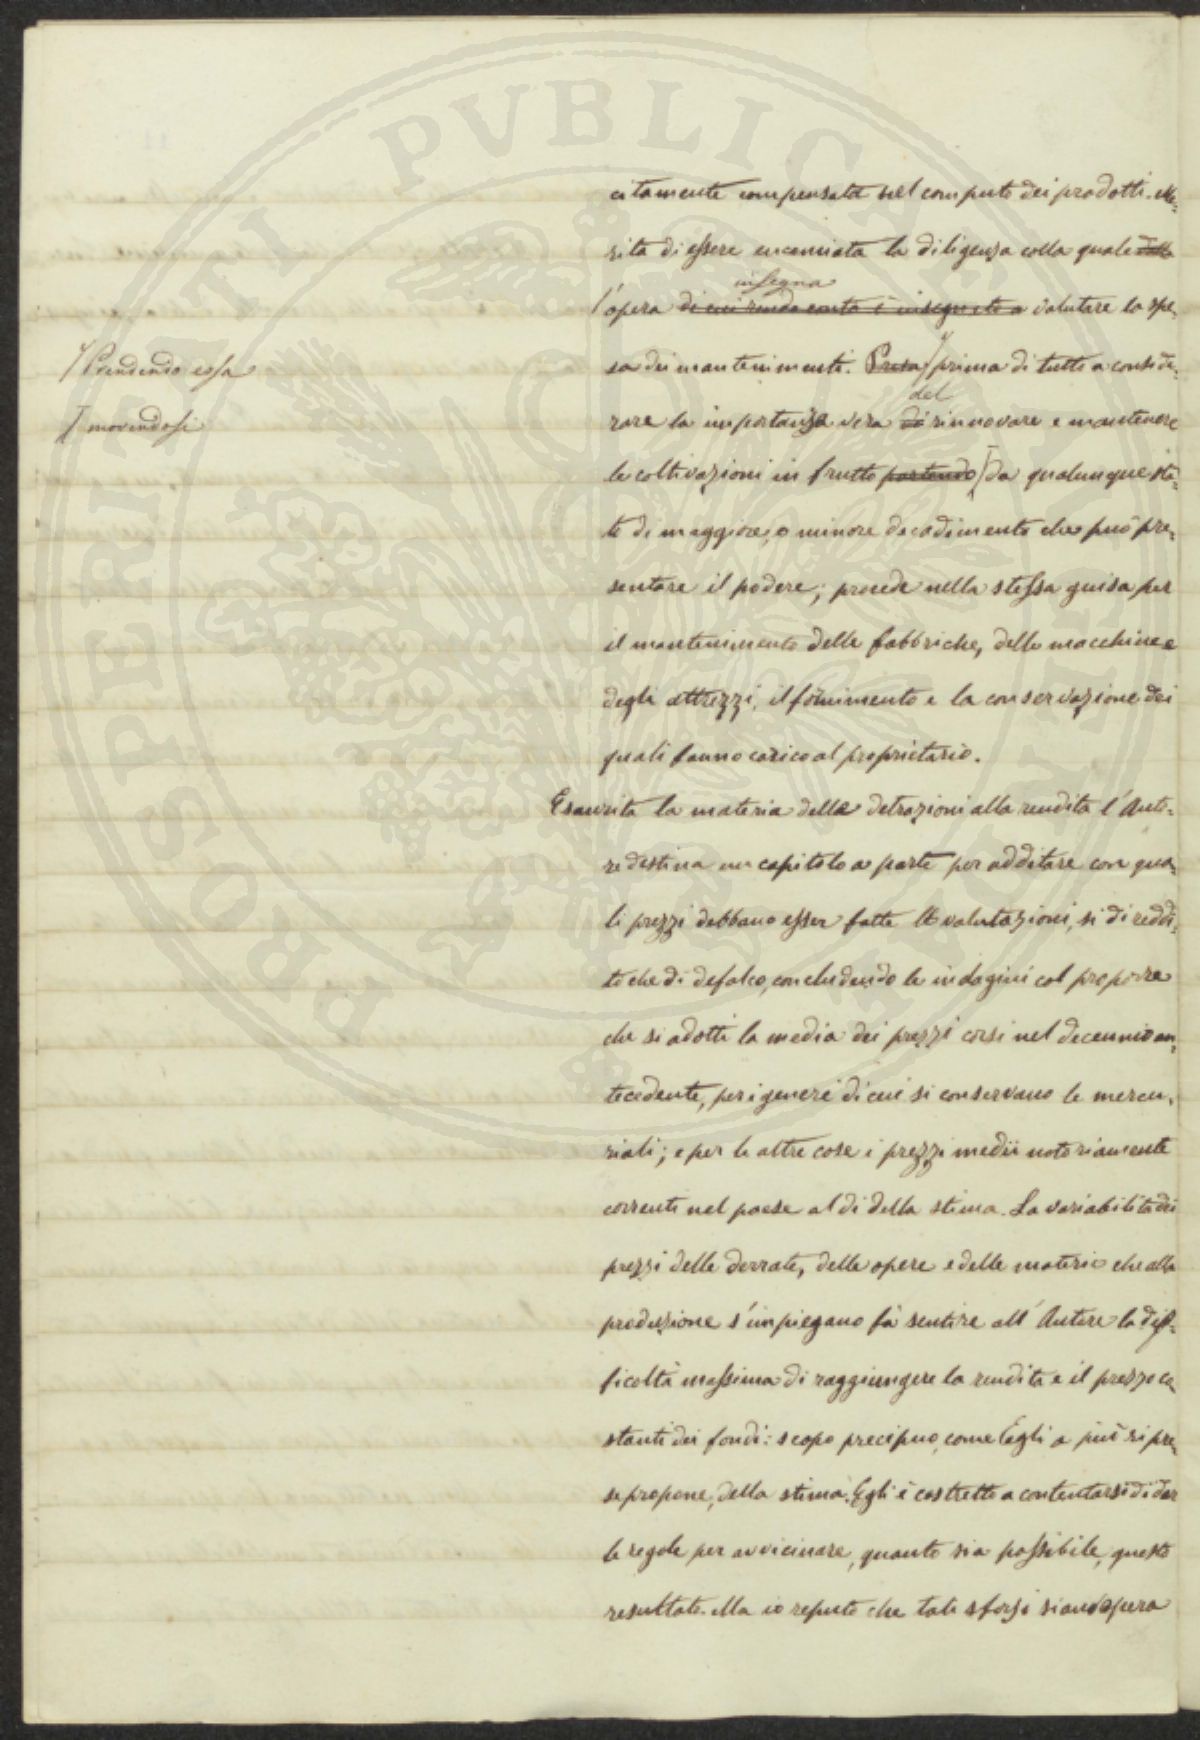 PROSPERITATI PUBLICAE AUGENDAE
citamente compensata nel computo dei prodotti. Me-
rita di essere encomiata la diligenza colla quale della
insegna
l'opera di cui rendo conto è insegnato a valutare la spe-
sa dei mantenimenti. Presa prima di tutto a conside-
Prendendo essa
del
rare la importanza vera di rinnovare e mantenere
movendosi
le coltivazioni in frutto partendo da qualunque sta-
to di maggiore, o minore decadimento che può pre-
sentare il podere; procede nella stessa guisa per
il mantenimento delle fabbriche, delle macchine e
degli attrezzi, il fornimento e la conservazione dei
quali fanno carico al proprietario.
Esaurita la materia delle detrazioni alla rendita l'Auto-
re destina un capitolo a parte per additare con qua-
li prezzi debbano esser fatte le valutazioni, sì di reddi-
to che di defalco, concludendo le indagini col proporre
che si adotti la media dei prezzi corsi nel decennio an-
tecedente, per i generi di cui si conservano le mercu-
riali; e per le altre cose i prezzi medii notoriamente
correnti nel paese al dì della stima. La variabilità dei
prezzi delle derrate, delle opere e delle materie che alla
produzione s'impiegano fà sentire all'Autore la dif-
ficoltà massima di raggiungere la rendita e il prezzo co-
stanti dei fondi: scopo precipuo, come Egli a più ri pre-
se propone, della stima. Egli è costretto a contentarsi di dar
le regole per avvicinare, quanto sia possibile, questo
resultato. Ma io reputo che tali sforzi siano opera